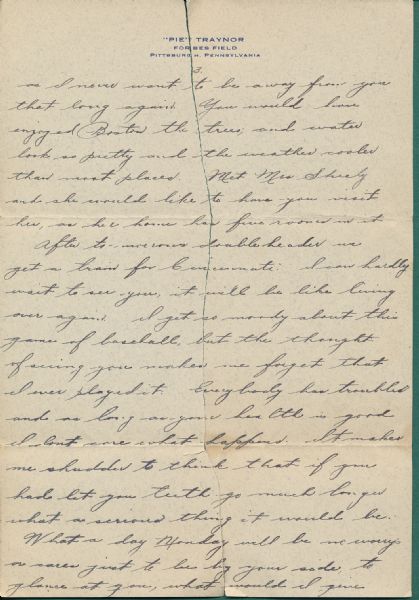 "PIE" TRAYNOR
FORBES FIELD
PITTSBURGH, PENNSYLVANIA
3.
as I never want to be away from you
that long again. You would have
enjoyed Boston the trees, and water
look so pretty and the weather cooler
than most places. Met Mrs Sheely
and she would like to have you visit
her, as her home has five rooms in it.
After to-morrows doubleheader we
get a train for Cincinnati. I can hardly
wait to see you, it will be like living
over again. I get so moody about this
game of baseball, but the thought
of seeing you makes me forget that
I ever played it. Everybody has troubles
and as long as your health is good
I dont care what happens. It makes
me shudder to think that if you
had let your teeth go much longer
what a serious thing it would be.
What a day Monday will be no worrys
or cares just to be by your side, to
glance at you, what would I give